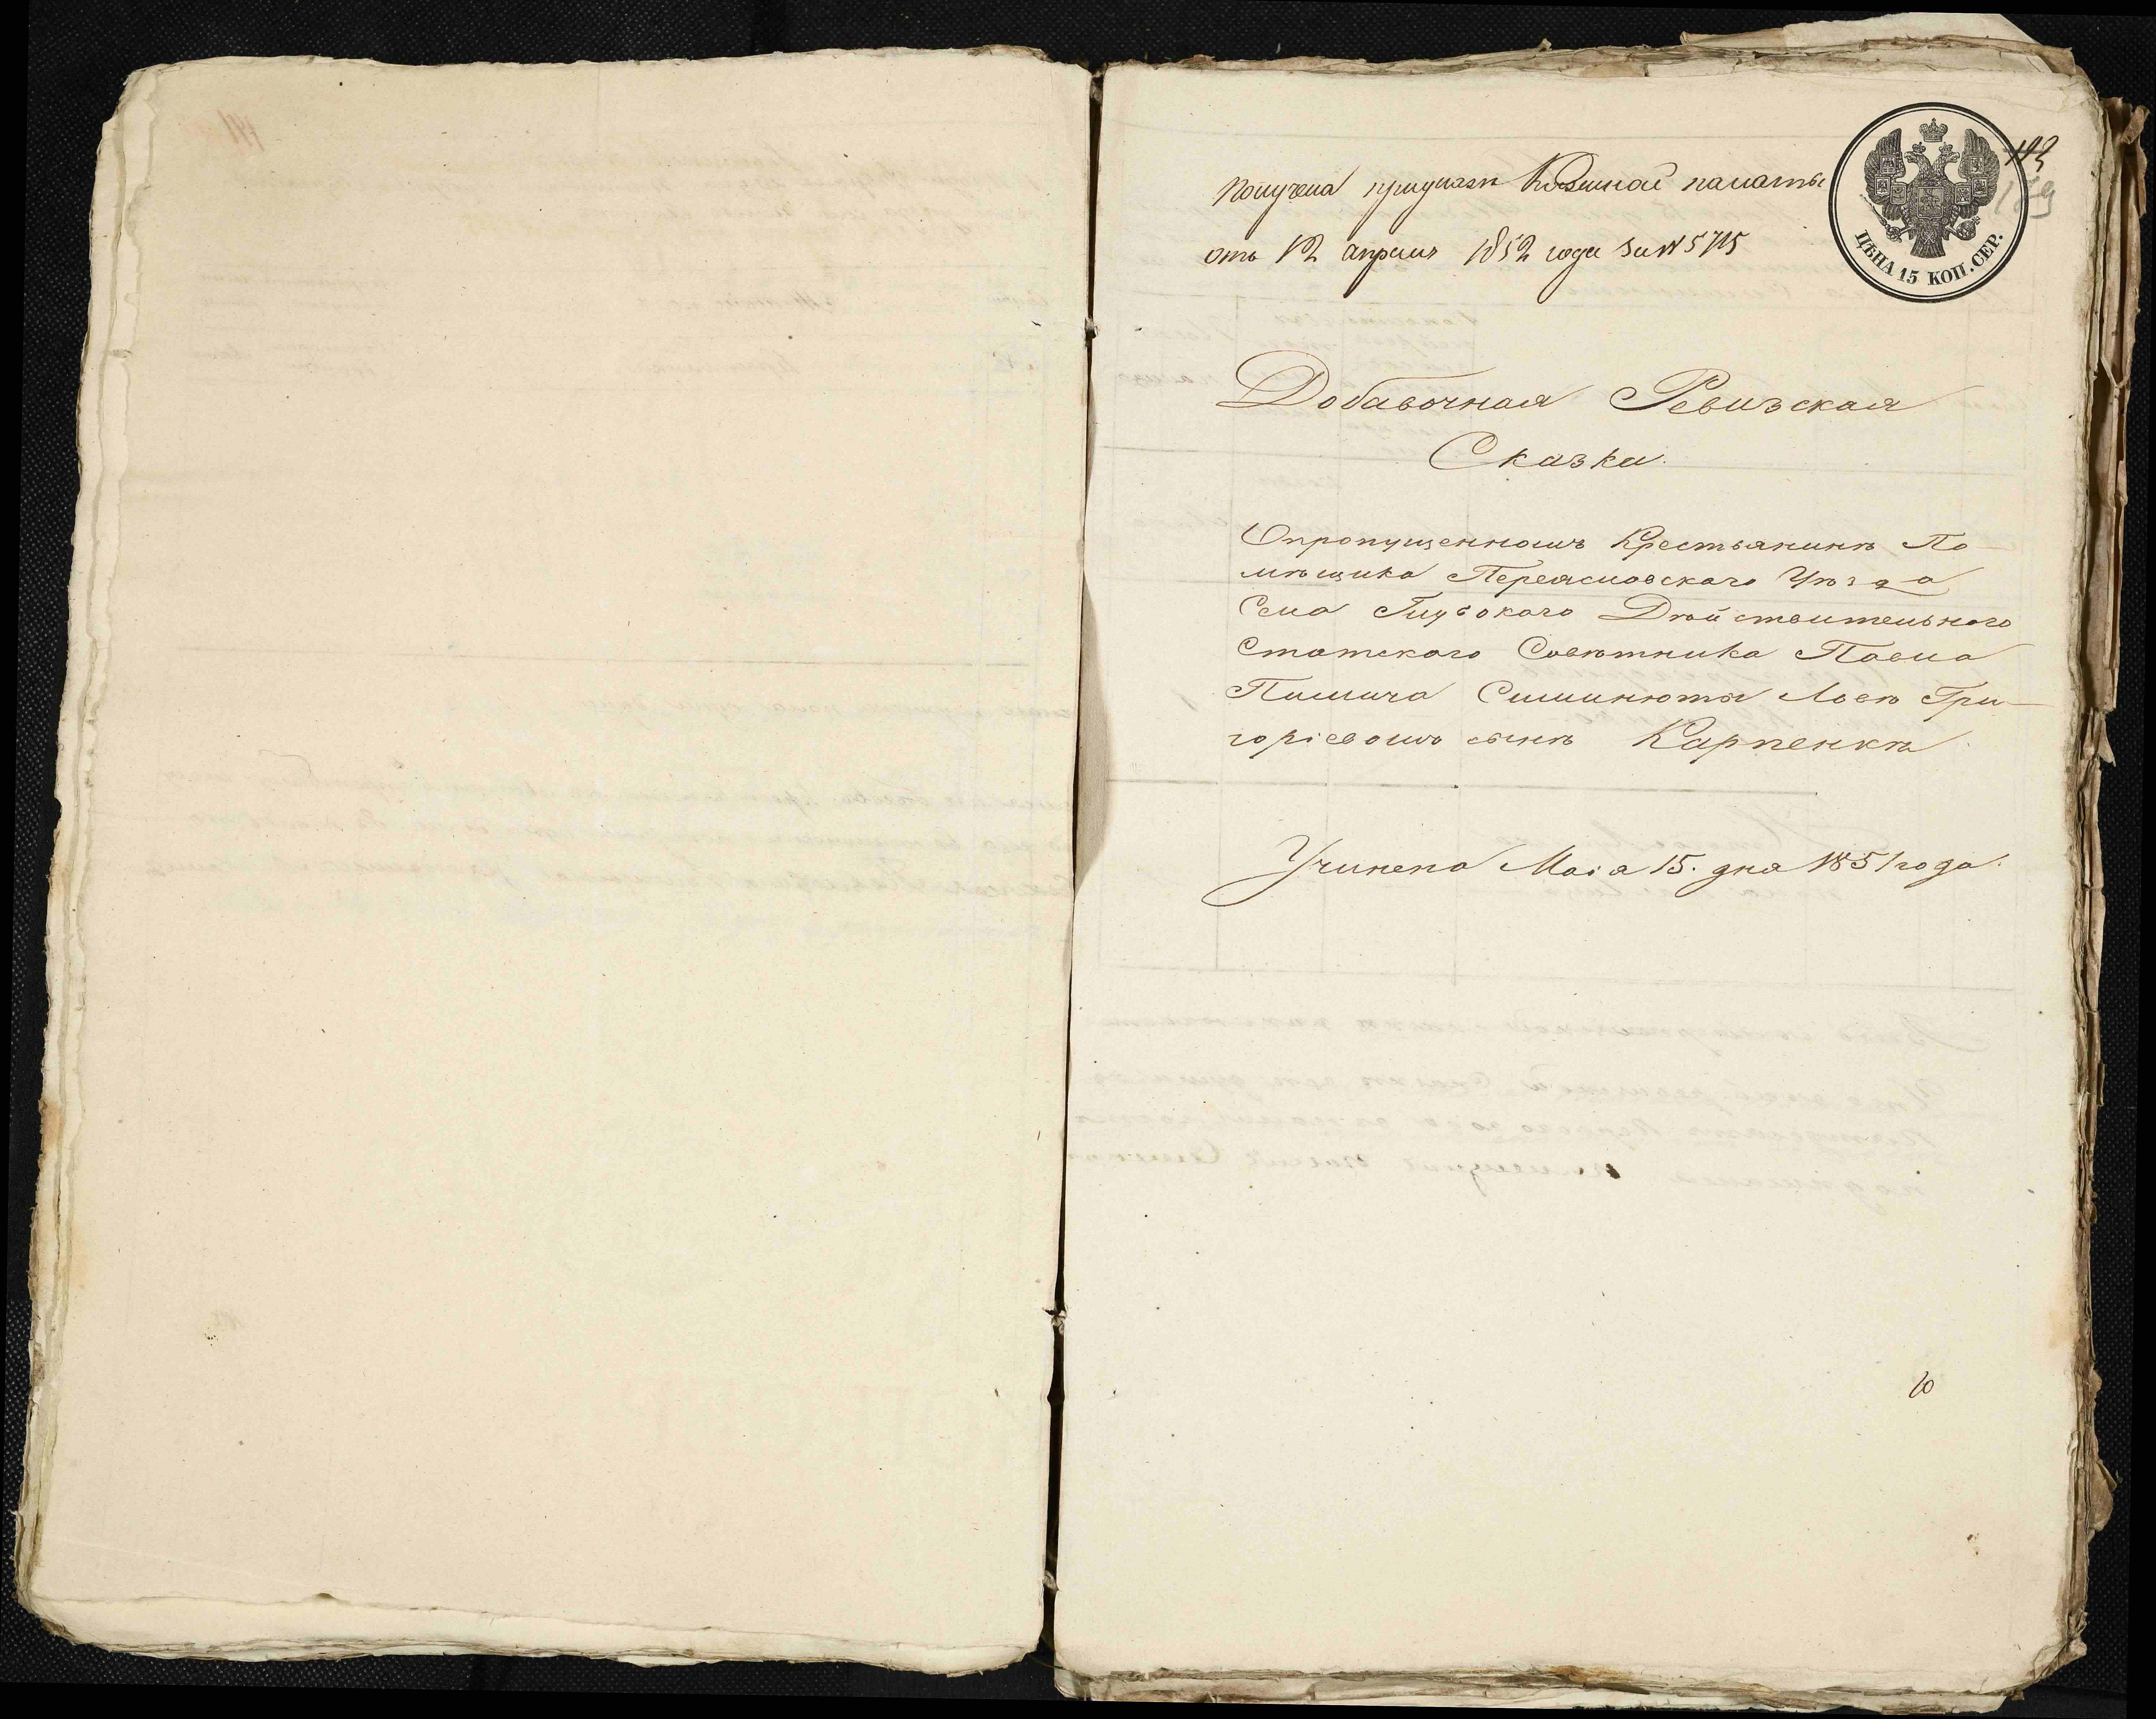 получена приуказе Казенной палаты
отъ 12 апреля 1852 года за N 5715
ЦѢНА 15 КОП. СЕР.
Добавочная Ревизская
Сказка.
Опропущенномъ Крестьянинѣ По-
мѣщика Переяславскаго Уѣзда
Села Глубокаго Дѣйствительного
Статского Совѣтника Павла
Симинюты Львѣ Гри-
горіевомъ сынѣ Карпенкѣ
Учинена Маіа 15. дня 1851 года.